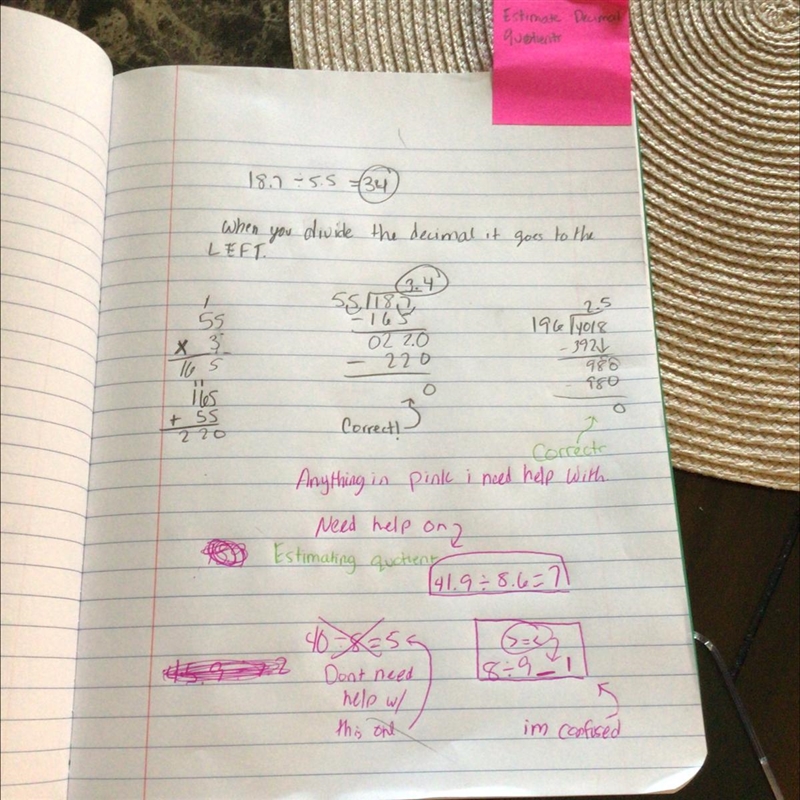 Estimate Decimal
quotients
18.7 ÷ 5.5 = 34
When you divide the decimal it goes to the
LEFT.
1
55
x 3
165
11
165
+ 55
220
3.4
5.5 187
- 165
022.0
- 220
0
Correct!
2.5
196 4018
- 392
980
- 980
0
Correct
Anything in pink i need help with
Need help on
Estimating quotient
41.9 ÷ 8.6 = ?
40 ÷ 8 = 5
Dont need
help w/
this one
> = <
8 ÷ 9 _ 1
im confused